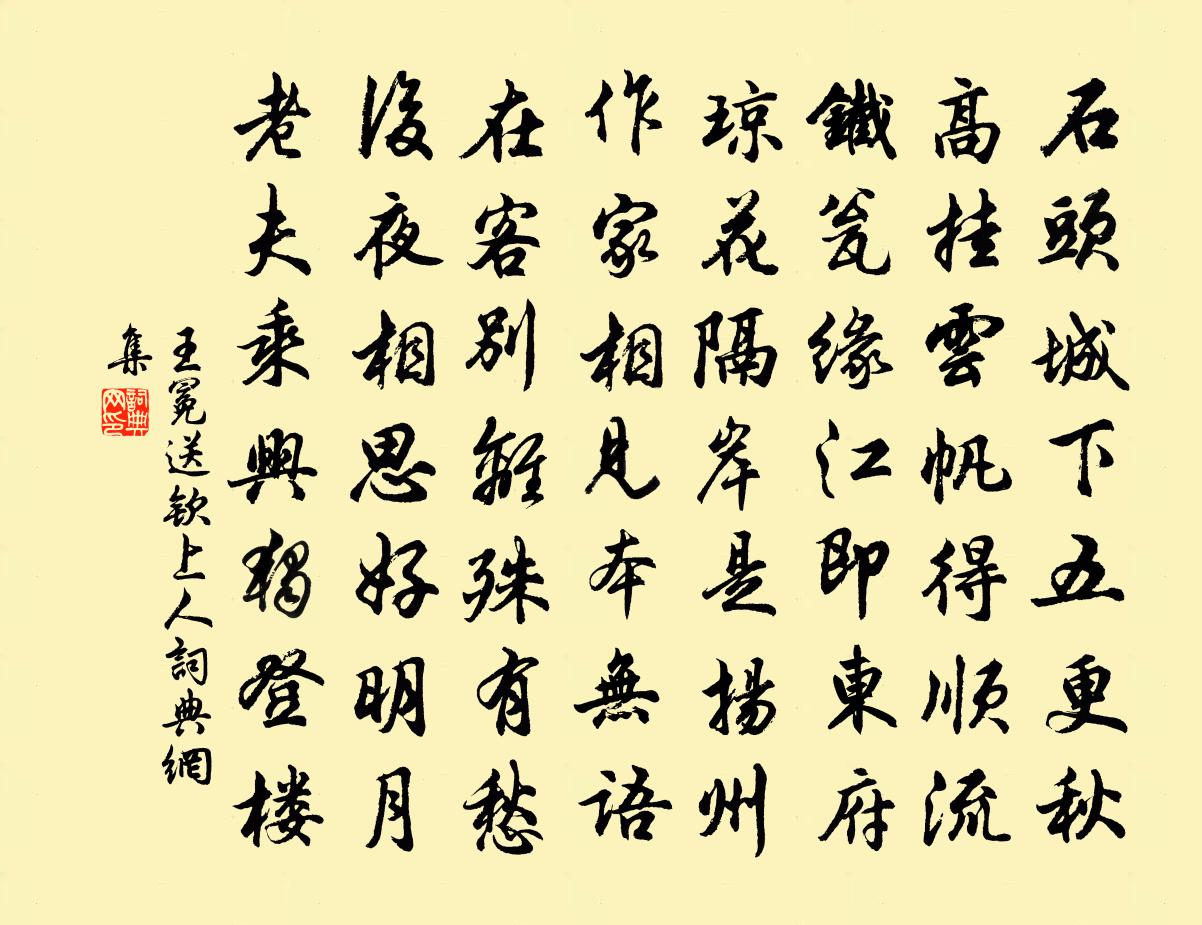 石頭城下五更秋
高挂雲帆得順流
鐵瓮缘江即東府
琼花隔岸是揚州
作家相見本無語
在客别離殊有愁
後夜相思好明月
老夫乘興獨登楼
王冕送欽上人詞典網
集
詞典网印